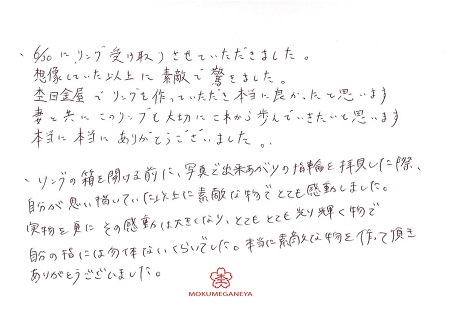 、6/30 に リング 受け取りさせていただきました。
想像していた以上に 素敵で 驚きました。
杢目金屋で リングを作っていただき 本当に良かったと思います
妻と共に このリングを 大切に これから 歩んでいきたいと思います
本当に 本当に ありがとうございました。
、リングの箱を開ける前に、写真で出来あがりの指輪を拝見した際、
自分が思い描いていた以上に素敵な物でとても感動しました。
実物を更に その感動は大きくなり、とても とても 光り輝く物で
自分の指には勿体ないくらいでした。本当に素敵な物を作って頂き
ありがとうございました。
MOKUMEGANEYA